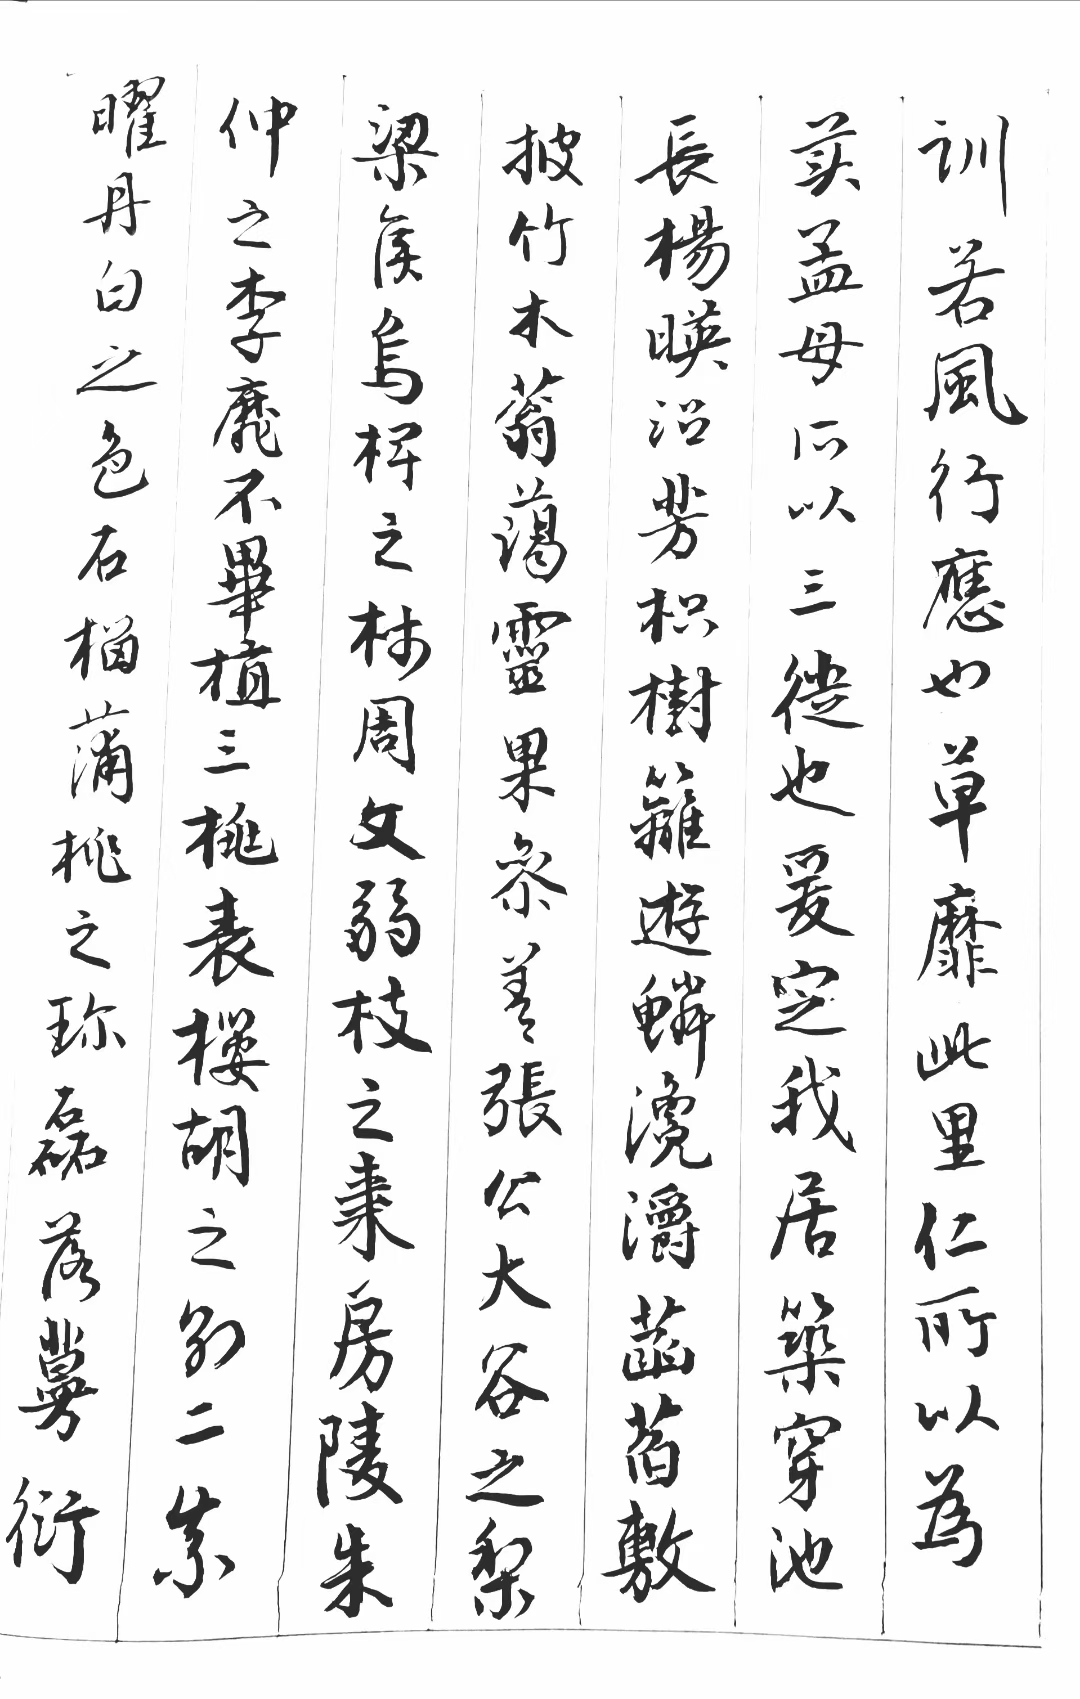 訓若風行應也草靡此里仁所以為
美孟母所以三徙也爰定我居築穿池
長楊暎沼芳枳樹籬遊鱗瀺灂菡萏敷
披竹木蓊藹靈果參差張公大谷之梨
梁侯烏椑之柿周文弱枝之棗房陵朱
仲之李靡不畢植三桃表櫻胡之別二柰
曜丹白之色石榴蒲桃之珍磊落蔓衍